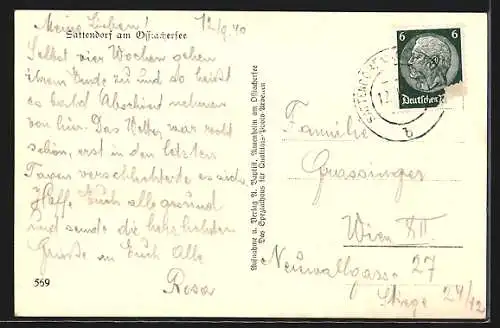 Meine Lieben! 12/9.40
Sattendorf am Ossiachersee
Selbst vier Wochen gehen
ihrem Ende zu und so heißt
es bald Abschied nehmen
von hier. Das Wetter war recht
schön, erst in den letzten
Tagen verschlechterte es sich.
Hoffe Euch alle gesund
und sende die herzlichsten
Grüße an Euch Alle
Rosa
569
Aufnahme u. Verlag A. Annenheim am Ossiachersee
Das Spezialhaus für Qualitäts-Photo-Arbeiten
6 6
Deutsches
12.
b
Familie
Grassinger
Wien XII
Neuwallgasse 27
Stiege 24/12